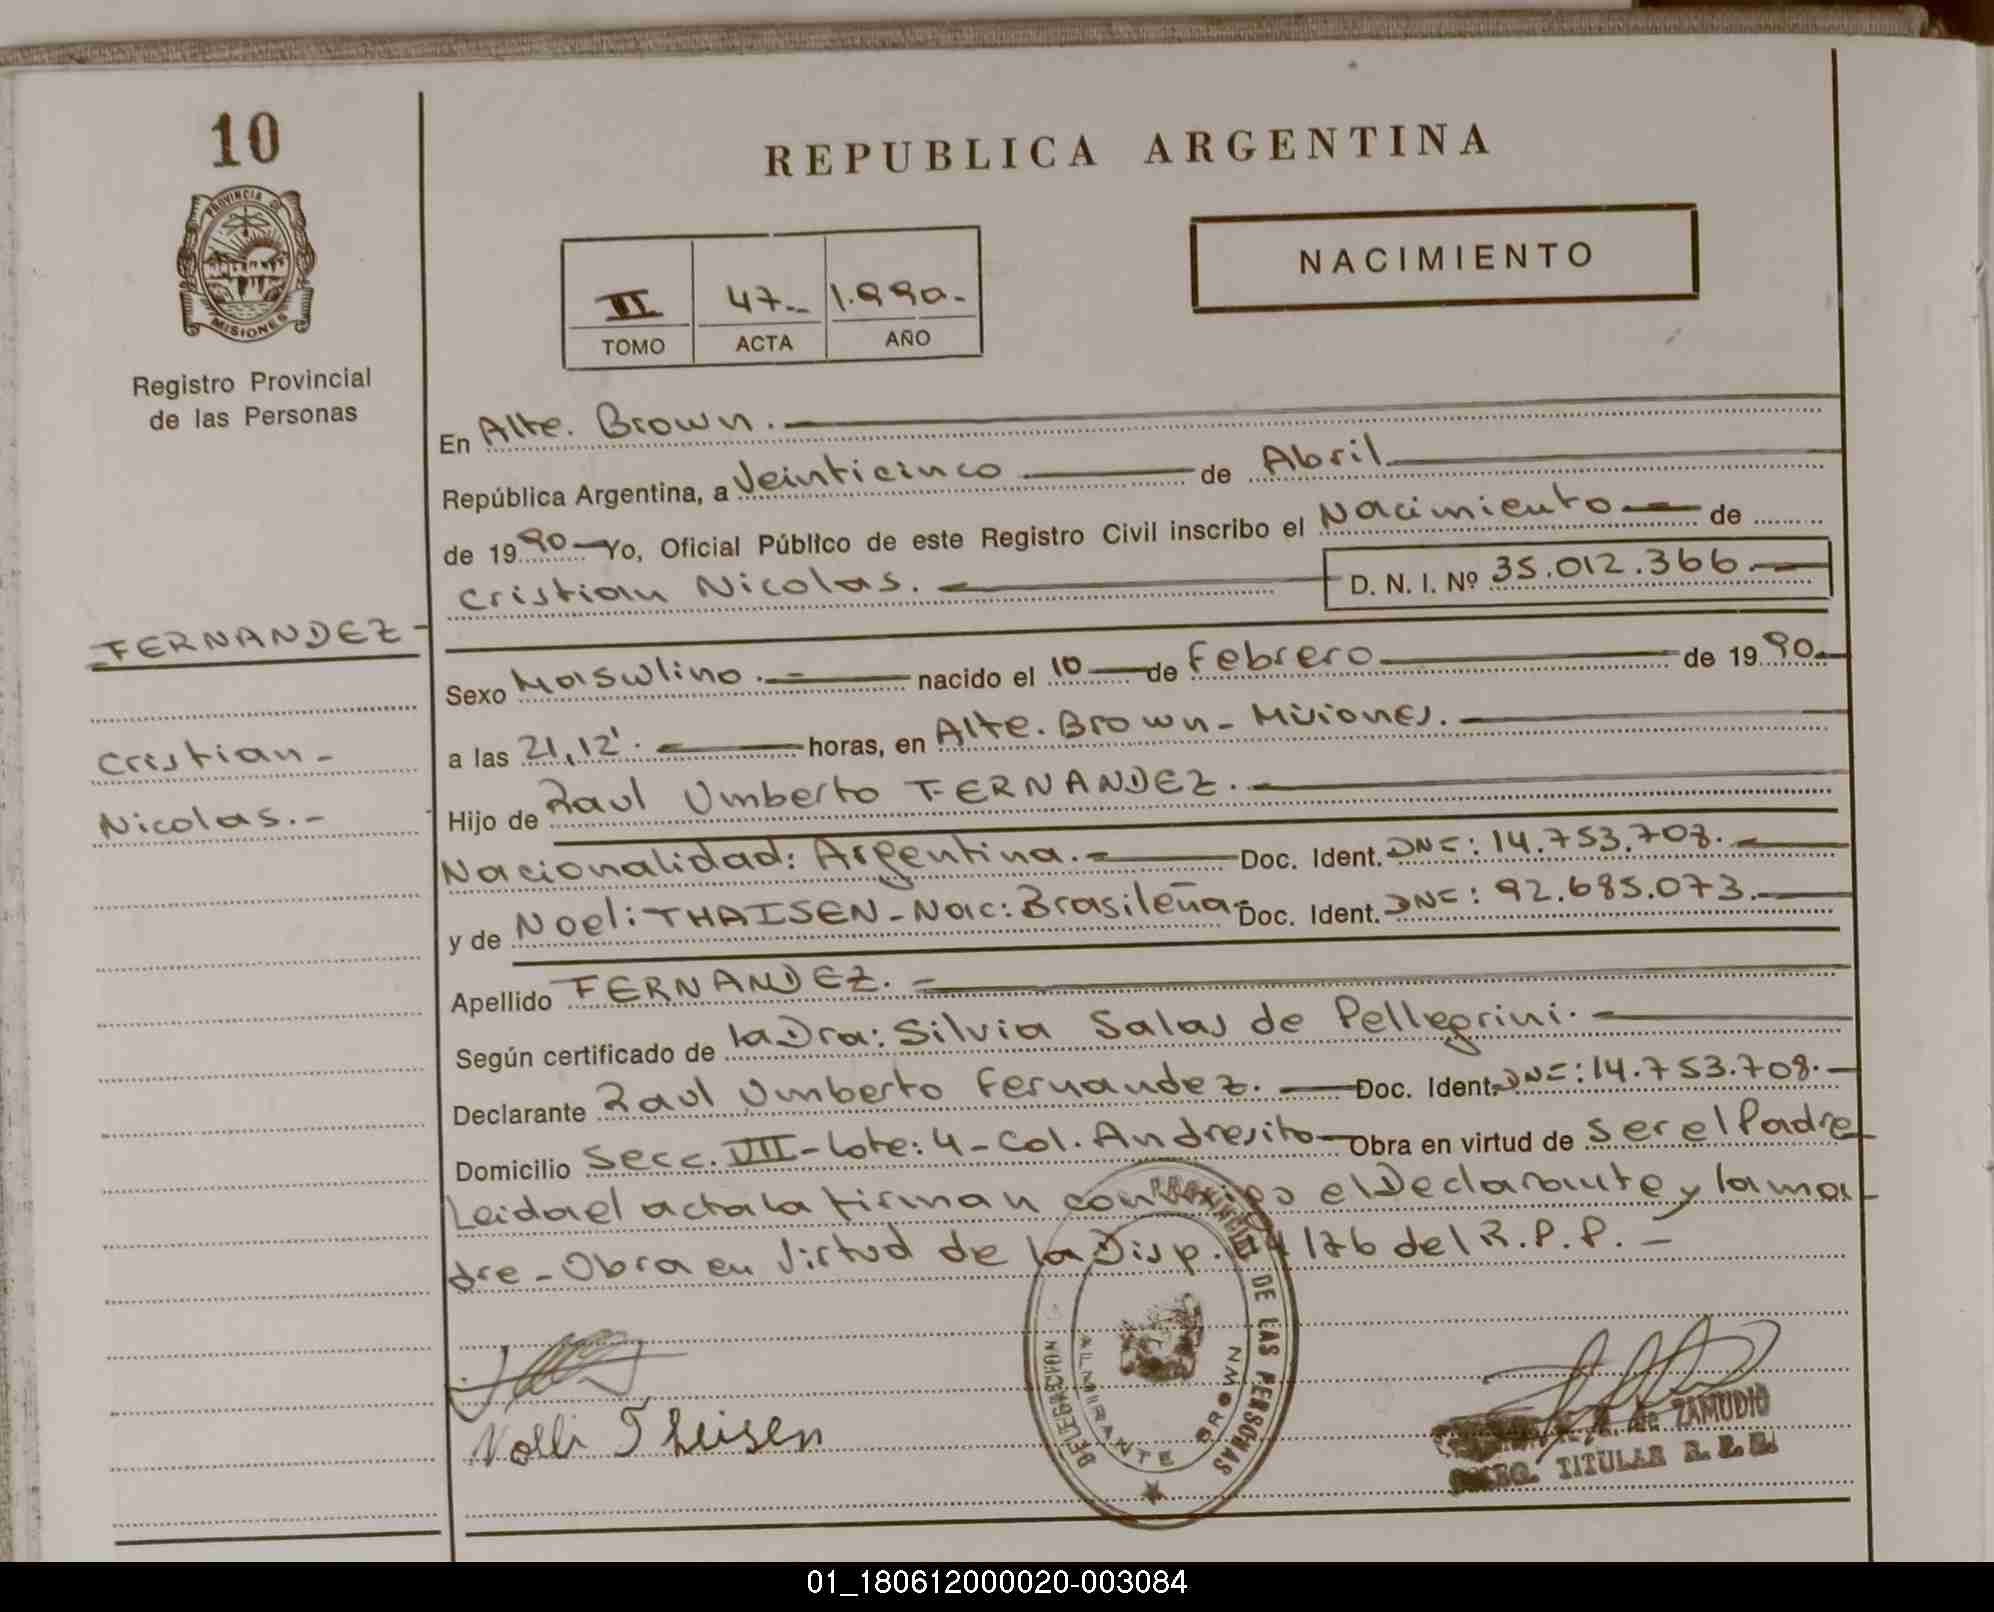 10
PROVINCIA DE
MISIONES
Registro Provincial
de las Personas
REPUBLICA ARGENTINA
NACIMIENTO
II 47.- 1.990.-
TOMO ACTA AÑO
En Alte. Brown.
República Argentina, a Veinticinco de Abril
de 1990 Yo, Oficial Público de este Registro Civil inscribo el Nacimiento de
Cristian Nicolas. D. N. I. Nº 35.012.366.
FERNANDEZ-
Cristian-
Nicolas.-
Sexo Masculino. nacido el 10 de Febrero de 1990
a las 21,12'. horas, en Alte. Brown- Misiones.
Hijo de Raul Umberto FERNANDEZ.
Nacionalidad: Argentina.- Doc. Ident. DNI: 14.753.708.
y de Noeli THAISEN-Nac: Brasileña- Doc. Ident. DNI: 92.685.073.
Apellido FERNANDEZ.
Según certificado de la Dra: Silvia Salas de Pellegrini.
Declarante Raul Umberto Fernandez. Doc. Ident. DNI: 14.753.708.
Domicilio Secc. VIII-Lote: 4-Col. Andresito- Obra en virtud de ser el Padre
Leida el acta la firman conmigo el Declarante y la ma-
dre-Obra en Virtud de la Disp. 176 del R.P.P.-
DE LAS PERSONAS
DELEGACION
ALMIRANTE BROWN
Nolli Theisen
de ZAMUDIO
TITULAR
01_180612000020-003084